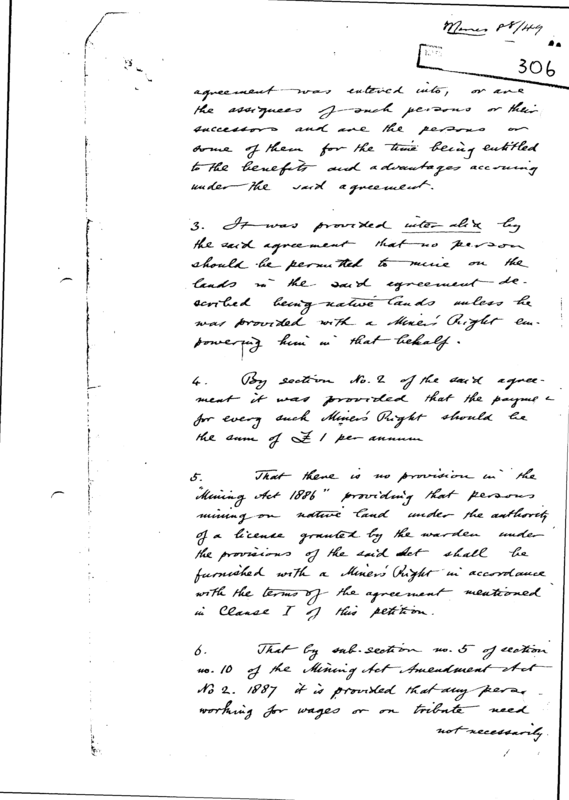 Mines 88/49
306
agreement was entered into, or are
the assignees of such persons or their
successors and are the persons or
some of them for the time being entitled
to the benefits and advantages accruing
under the said agreement.
3. It was provided inter alia by
the said agreement that no person
should be permitted to mine on the
lands in the said agreement de-
scribed being native lands unless he
was provided with a Miner's Right em-
powering him in that behalf.
4. By section No. 2 of the said agree-
ment it was provided that the payme
for every such Miner's Right should be
the sum of £1 per annum
5. That there is no provision in the
"Mining Act 1886" providing that persons
mining on native land under the authority
of a license granted by the warden under
the provisions of the said Act shall be
furnished with a Miner's Right in accordance
with the terms of the agreement mentioned
in Clause I of this petition.
6. That by sub-section no. 5 of section
no. 10 of the Mining Act Amendment Act
No 2. 1887 it is provided that any perso
working for wages or on tribute need
not necessarily